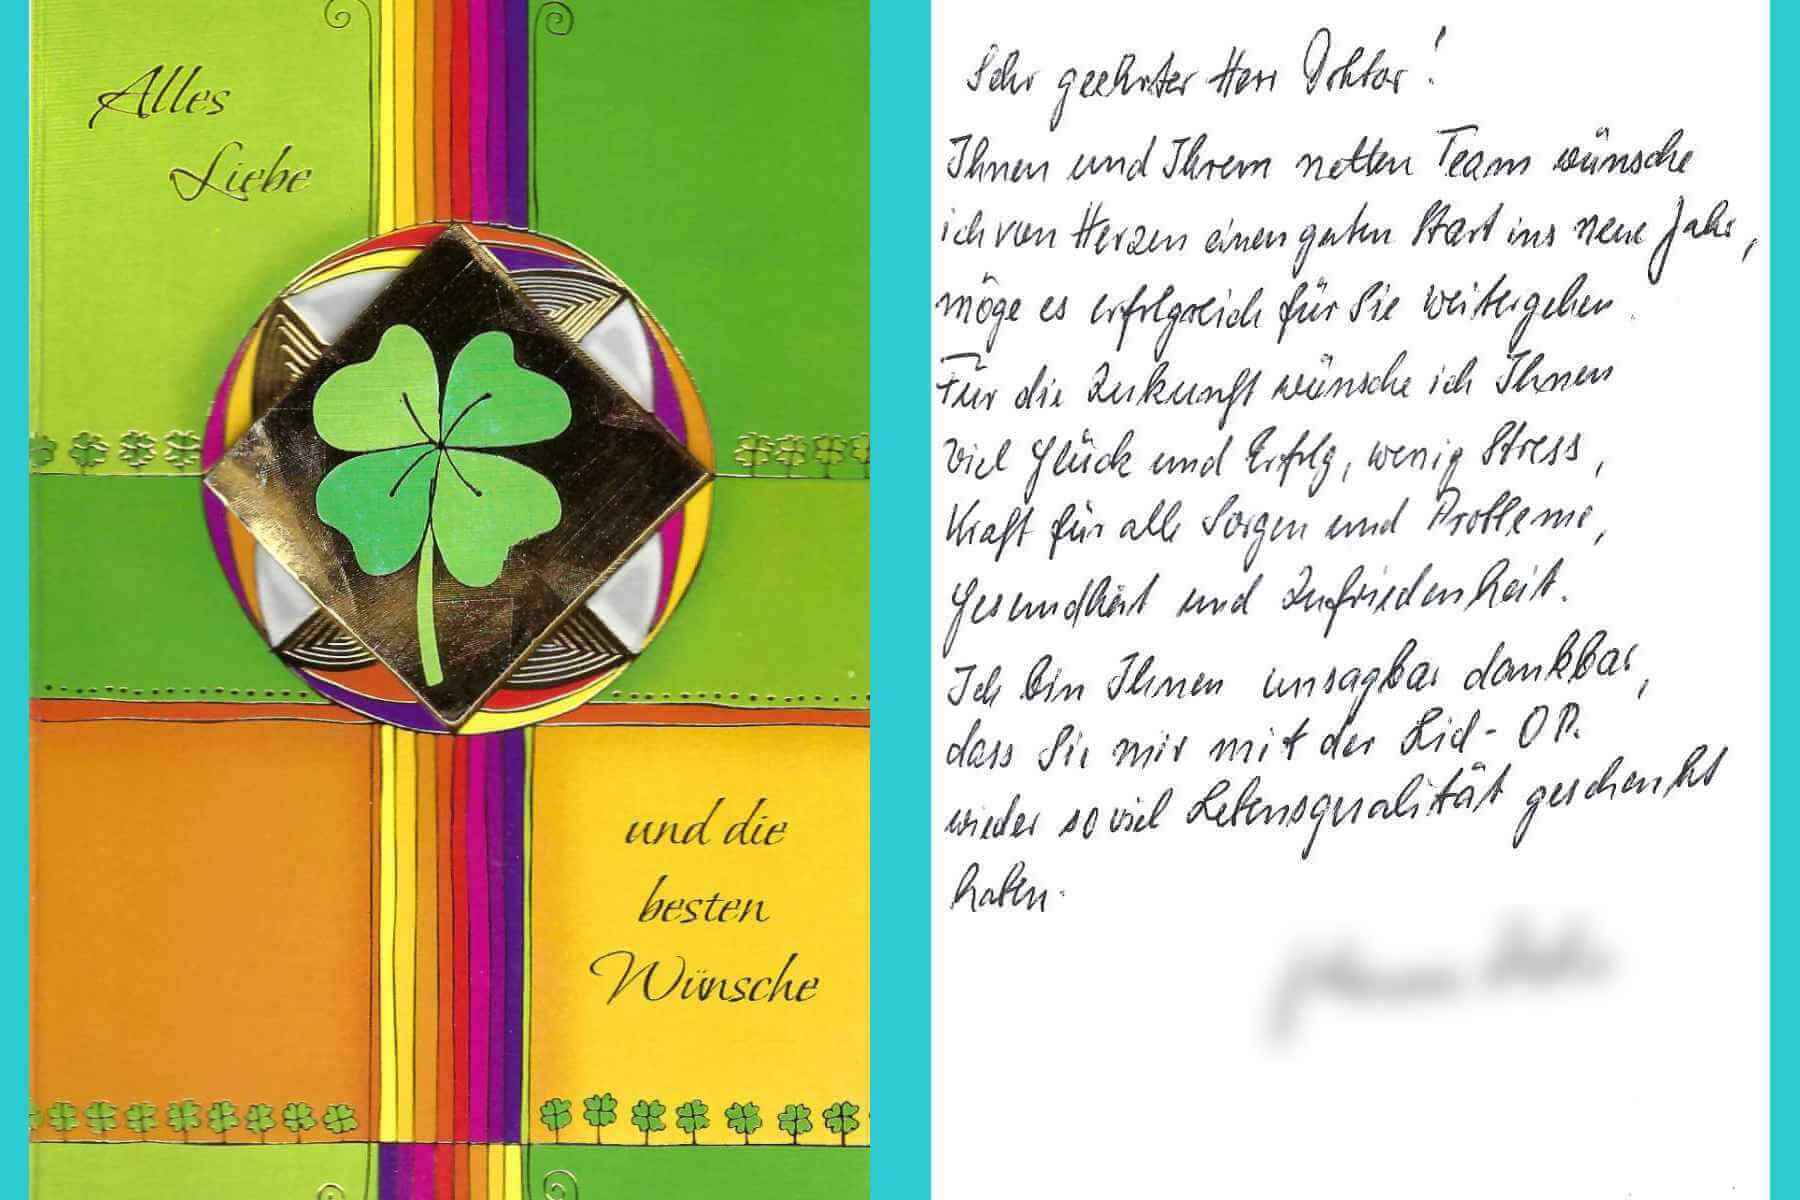 Alles
Liebe
und die
besten
Wünsche
Sehr geehrter Herr Doktor!
Ihnen und Ihrem netten Team wünsche
ich von Herzen einen guten Start ins neue Jahr,
möge es erfolgreich für Sie weitergehen.
Für die Zukunft wünsche ich Ihnen
viel Glück und Erfolg, wenig Stress,
Kraft für alle Sorgen und Probleme,
Gesundheit und Zufriedenheit.
Ich bin Ihnen unsagbar dankbar,
dass Sie mir mit der Lid-OP.
wieder so viel Lebensqualität geschenkt
haben.